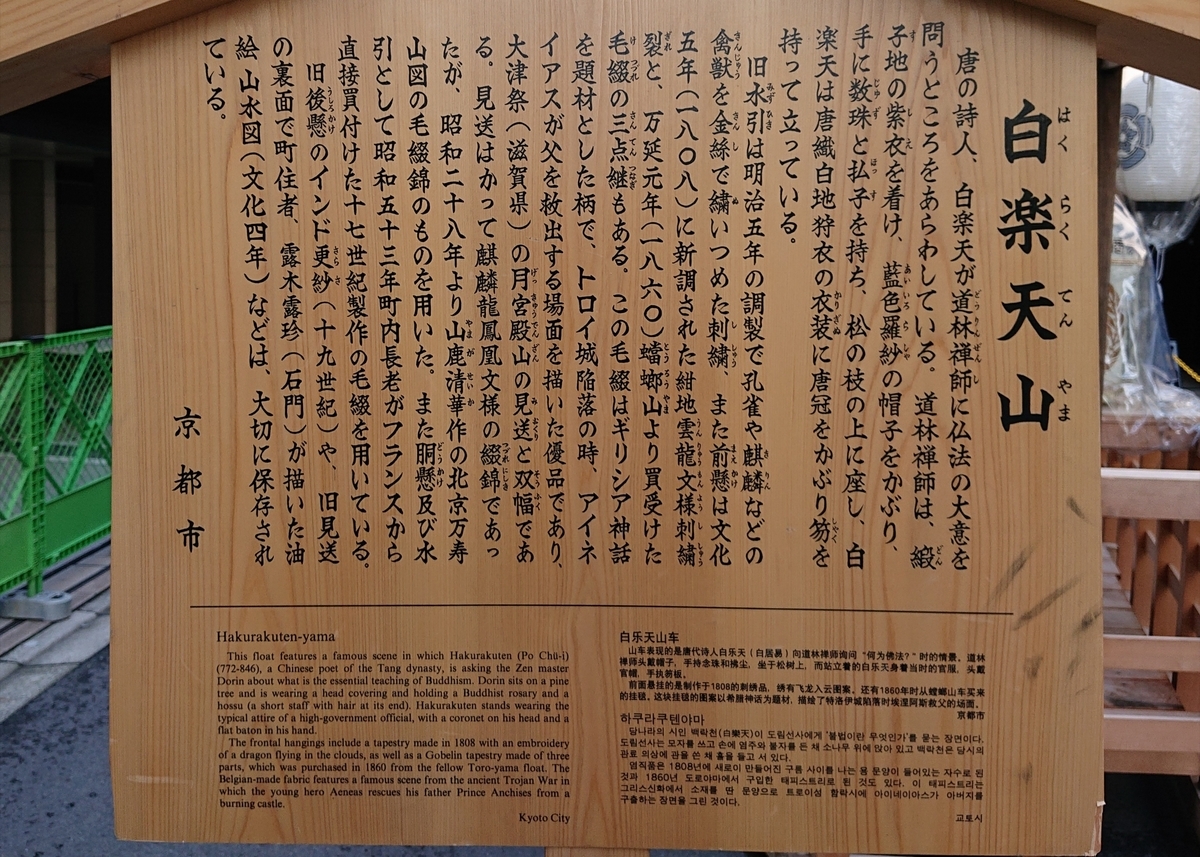 白楽天山
はくらくてんやま
唐の詩人、白楽天が道林禅師に仏法の大意を
問うところをあらわしている。道林禅師は、緞
子地の紫衣を着け、藍色羅紗の帽子をかぶり、
手に数珠と払子を持ち、松の枝の上に座し、白
楽天は唐織白地狩衣の衣装に唐冠をかぶり笏を
持って立っている。
旧水引は明治五年の調製で孔雀や麒麟などの
禽獣を金絲で繍いつめた刺繍、また前懸は文化
五年(一八〇八)に新調された紺地雲龍文様刺繍
裂と、万延元年(一八六〇)蟷螂山より買受けた
毛綴の三点継もある。この毛綴はギリシア神話
を題材とした柄で、トロイ城陥落の時、アイネ
イアスが父を救出する場面を描いた優品であり、
大津祭(滋賀県)の月宮殿山の見送と双幅であ
る。見送はかって麒麟龍鳳凰文様の綴錦であっ
たが、昭和二十八年より山鹿清華作の北京万寿
山図の毛綴錦のものを用いた。また胴懸及び水
引として昭和五十三年町内長老がフランスから
直接買付けた十七世紀製作の毛綴を用いている。
旧後懸のインド更紗(十九世紀)や、旧見送
の裏面で町住者、露木露珍(石門)が描いた油
絵 山水図(文化四年)などは、大切に保存され
ている。
京都市
Hakurakuten-yama
This float features a famous scene in which Hakurakuten (Po Chü-i)
(772-846), a Chinese poet of the Tang dynasty, is asking the Zen master
Dorin about what is the essential teaching of Buddhism. Dorin sits on a pine
tree and is wearing a head covering and holding a Buddhist rosary and a
hossu (a short staff with hair at its end). Hakurakuten stands wearing the
typical attire of a high-government official, with a coronet on his head and a
flat baton in his hand.
The frontal hangings include a tapestry made in 1808 with an embroidery
of a dragon flying in the clouds, as well as a Gobelin tapestry made of three
parts, which was purchased in 1860 from the fellow Toro-yama float. The
Belgian-made fabric features a famous scene from the ancient Trojan War in
which the young hero Aeneas rescues his father Prince Anchises from a
burning castle.
Kyoto City
白乐天山车
山车表现的是唐代诗人白乐天(白居易)向道林禅师询问"何为佛法?"时的情景。道林
禅师头戴帽子,手持念珠和拂尘,坐于松树上,而站立着的白乐天身着当时的官服,头戴
官帽,手执笏板。
前面悬挂的是制作于1808的刺绣品,绣有飞龙入云图案。还有1860年时从螳螂山车买来
的挂毯。这块挂毯的图案以希腊神话为题材,描绘了特洛伊城陷落时埃涅阿斯救父的场面。
京都市
하쿠라쿠텐야마
당나라의 시인 백락천(白樂天)이 도림선사에게 '불법이란 무엇인가'를 묻는 장면이다.
도림선사는 모자를 쓰고 손에 염주와 불자를 든 채 소나무 위에 앉아 있고 백락천은 당시의
관료 의상에 관을 쓴 채 홀을 들고 서 있다.
앞직품은 1808년에 새로이 만들어진 구름 사이를 나는 용 문양이 들어있는 자수로 된
것과 1860년 도로야마에서 구입한 태피스트리로 된 것도 있다. 이 태피스트리는
그리스신화에서 소재를 딴 문양으로 트로이성 함락시에 아이네이아스가 아버지를
구출하는 장면을 그린 것이다.
교토시